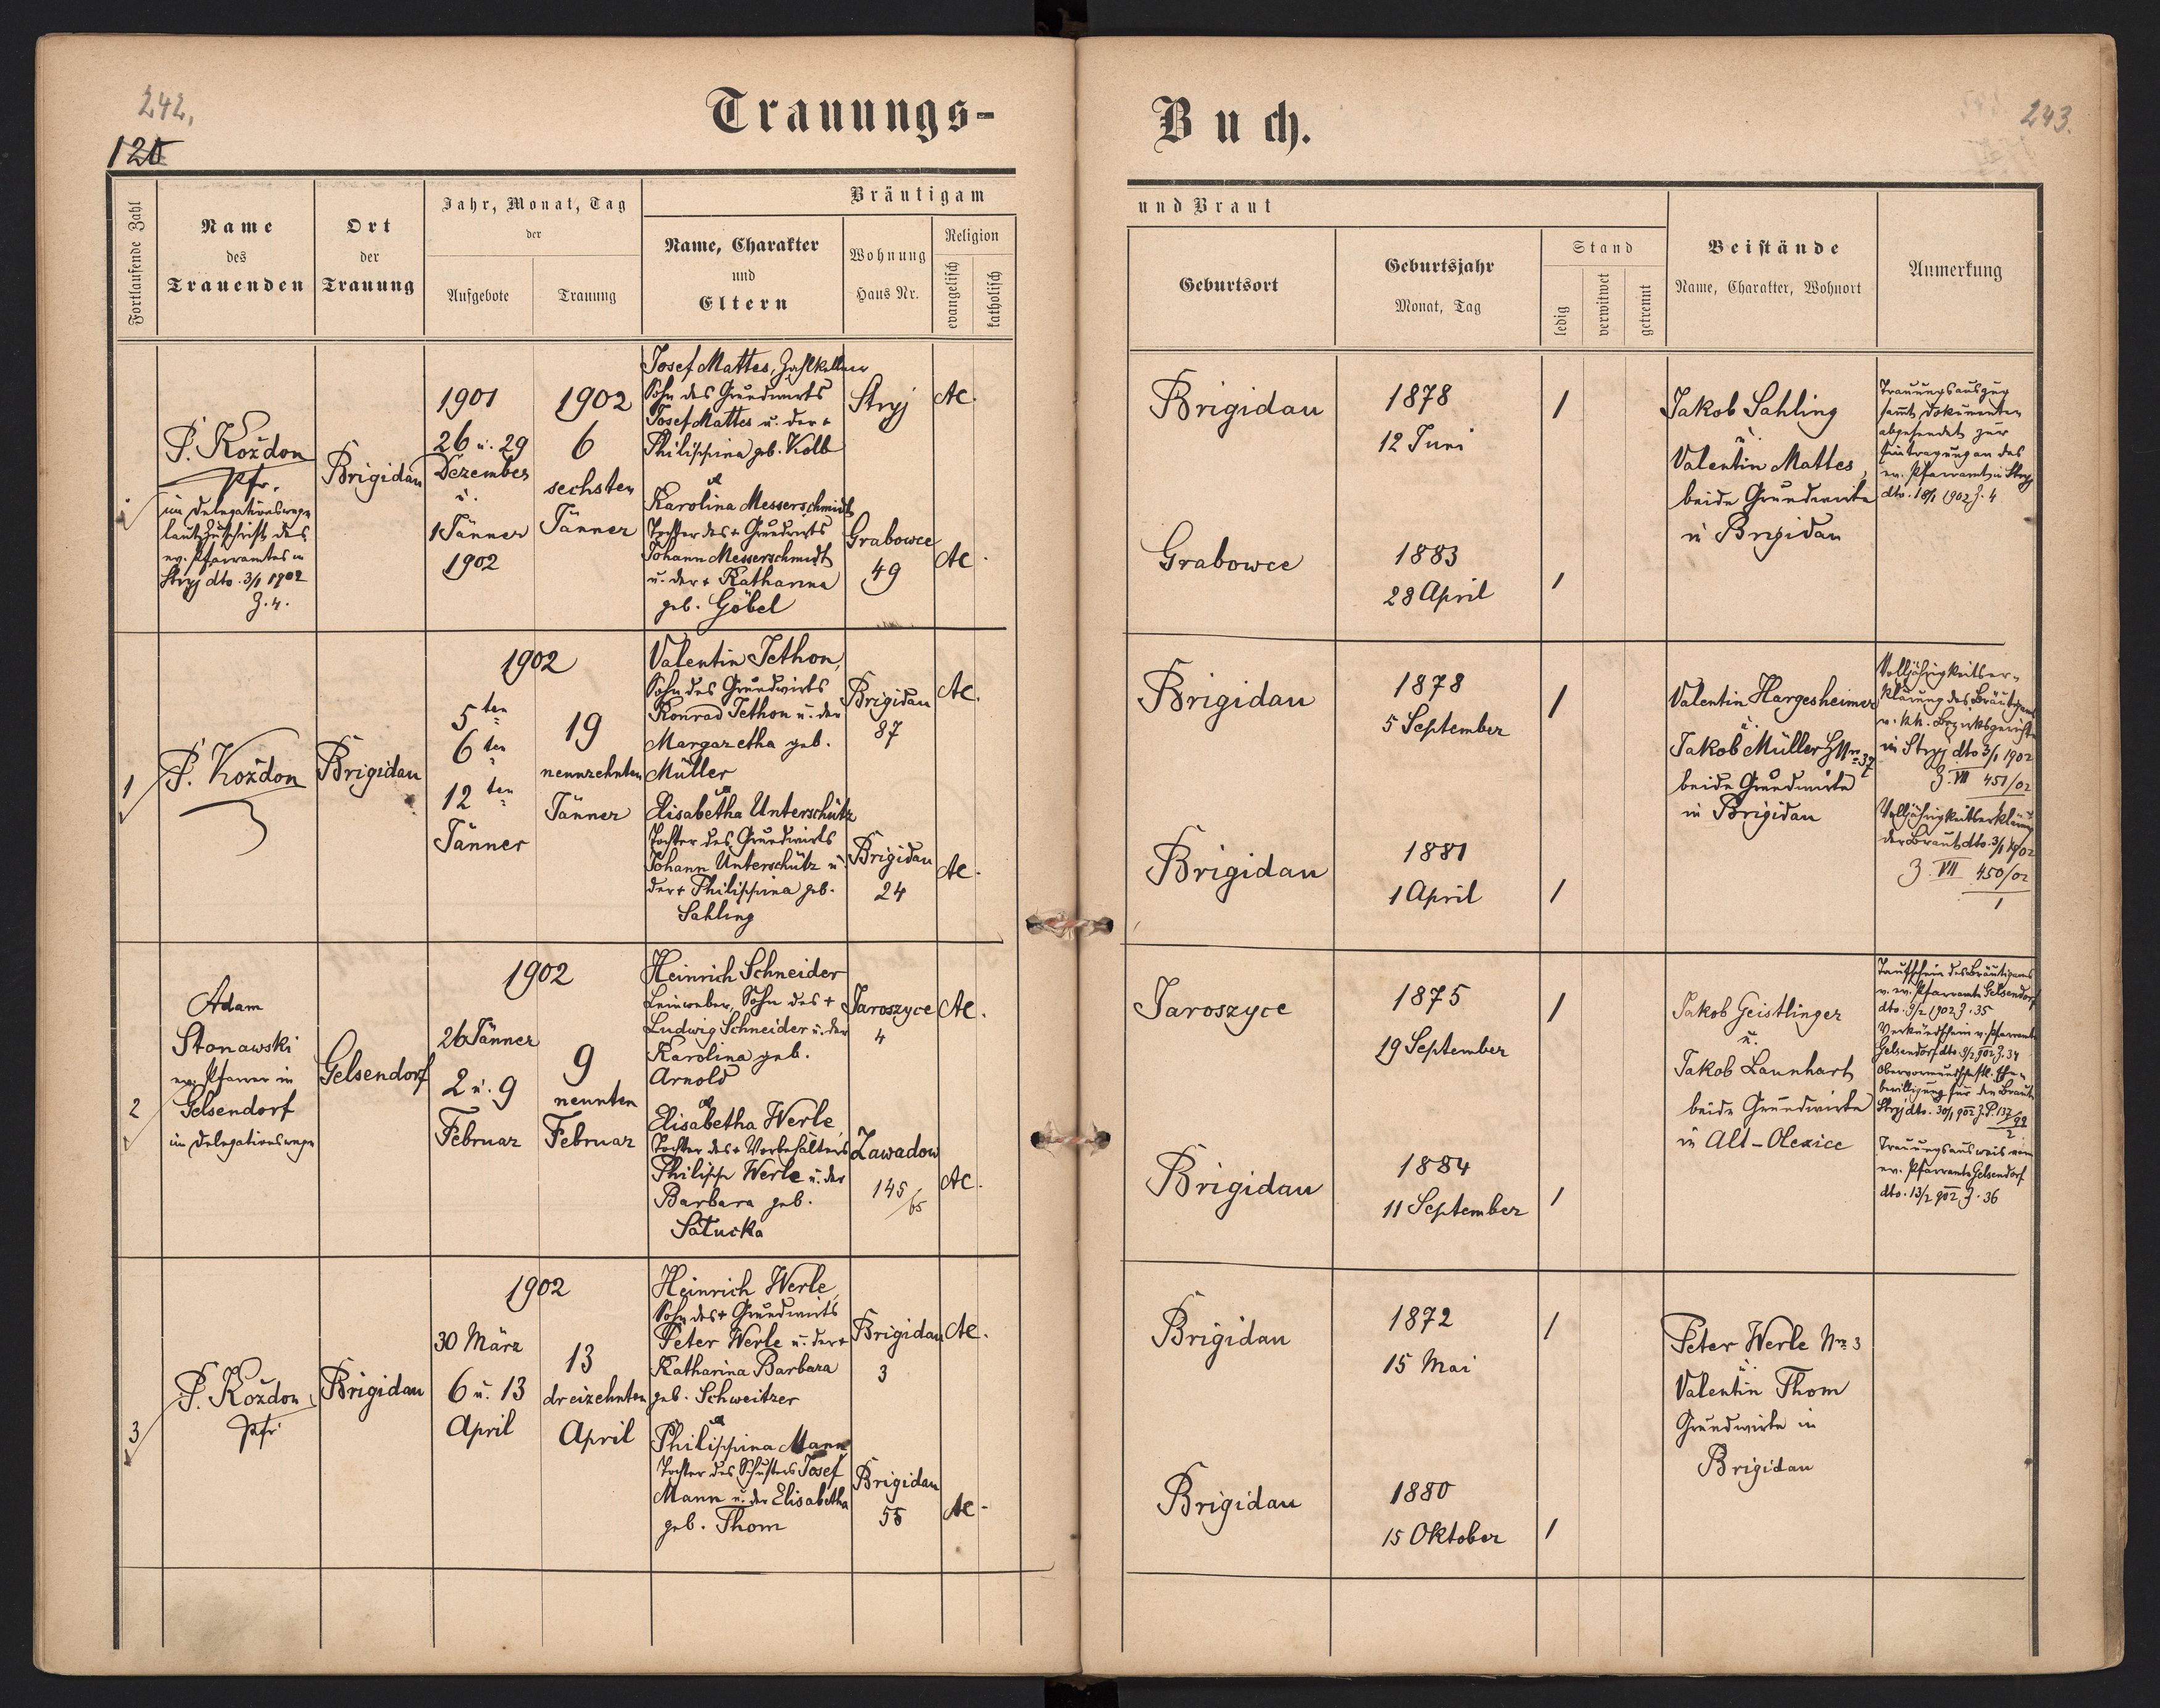 242,
120
Trauungs-
Fortlaufende Zahl
Name
des
Trauenden
Ort
der
Trauung
Jahr, Monat, Tag
der
Aufgebote
Trauung
Bräutigam
Name, Charakter
und
Eltern
Wohnung
Haus Nr.
Religion
evangelisch
katholisch
P. Kożdon
Pfr.
im Delegationswege
laut Zuschrift des
ev. Pfarramtes in
Stryj dto. 3/1 1902
Z. 4.
Brigidau
1901
26 u. 29
Dezember
u.
1 Jänner
1902
1902
6
sechsten
Jänner
Josef Mattes, Zahlkellner
Sohn des Grundwirts
Josef Mattes u. der +
Philippina geb. Kolb
u.
Karolina Messerschmidt
Tochter des + Grundwirts
Johann Messerschmidt
u. der + Katharina
geb. Göbel
Stryj
Grabowce
49
AC.
AC.
1
P. Kożdon
Brigidau
1902
5ten
6ten
12ten
Jänner
19
neunzehnten
Jänner
Valentin Jethon,
Sohn des Grundwirts
Konrad Jethon u. der
Margaretha geb.
Müller
u.
Elisabetha Unterschütz
Tochter des Grundwirts
Johann Unterschütz u.
der + Philippina geb.
Sahling
Brigidau
87
Brigidau
24
AC.
AC.
2
Adam
Stonawski
ev. Pfarrer in
Gelsendorf
im Delegationswege
Gelsendorf
1902
26 Jänner
2 u. 9
Februar
9
neunten
Februar
Heinrich Schneider
Leinweber, Sohn des +
Ludwig Schneider u. der
Karolina geb.
Arnold
u.
Elisabetha Werle,
Tochter des + Vorbehälters
Philipp Werle u. der
Barbara geb.
Sałucka
Jaroszyce
4
Zawadow
145/65
AC.
AC.
3
P. Kożdon,
Pfr
Brigidau
1902
30 März
6 u. 13
April
13
dreizehnten
April
Heinrich Werle,
Sohn des + Grundwirts
Peter Werle u. der +
Katharina Barbara
geb. Schweitzer
u.
Philippina Mann
Tochter des Schusters Josef
Mann u. der Elisabetha
geb. Thom
Brigidau
3
Brigidau
55
AC.
AC.
Buch.
243.
und Braut
Geburtsort
Geburtsjahr
Monat, Tag
Stand
ledig
verwitwet
getrennt
Beistände
Name, Charakter, Wohnort
Anmerkung
Brigidau
1878
12 Juni
1
Grabowce
1883
28 April
1
Jakob Sahling
u.
Valentin Mattes,
beide Grundwirte
in Brigidau
Trauungsauszug
samt Dokumenten
abgesendet zur
Eintragung an das
ev. Pfarramt in Stryj
dto. 18/1 1902 Z. 4
Brigidau
1878
5 September
1
Brigidau
1881
1 April
1
Valentin Hargesheimer
u.
Jakob Müller HNro 37
beide Grundwirte
in Brigidau
Volljährigkeitser-
klärung des Bräutigams
v. kk. Bezirksgerichte
in Stryj dto 3/1 1902
Z. VII 451/02
Volljährigkeitserklärung
der Braut dto. 3/1 1902
Z. VII 450/02
1
Jaroszyce
1875
19 September
1
Brigidau
1884
11 September
1
Jakob Geistlinger
u.
Jakob Launhart
beide Grundwirte
in Alt-Olexice
Taufschein des Bräutigams
v. ev. Pfarramte Gelsendorf
dto. 9/2 1902 Z. 35
Verkündschein v. Pfarramte
Gelsendorf dto. 9/2 902 Z. 34
Obervormundschaftl. Ehe-
bewilligung für die Braut
Stryj dto. 30/1 902 Z. P. 137/99
2
Trauungsausweis vom
ev. Pfarramte Gelsendorf
dto. 13/2 902 Z. 36
Brigidau
1872
15 Mai
1
Brigidau
1880
15 Oktober
1
Peter Werle Nro 3
u.
Valentin Thom
Grundwirte in
Brigidau